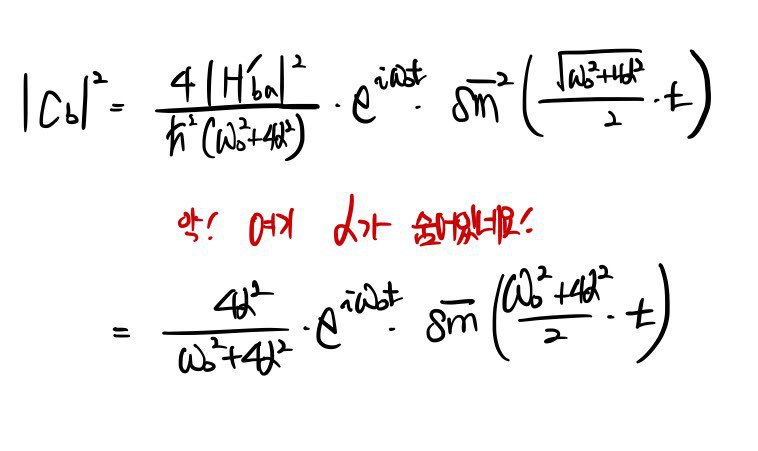 |C_b|² = \frac{4|H'_{ba}|²}{ħ²(ω₀²+4α²)} · e^{iω₀t} · sin²(\frac{\sqrt{ω₀²+4α²}}{2} · t)
악! 여기 α가 숨어있네요!
= \frac{4α²}{ω₀²+4α²} · e^{iω₀t} · sin(\frac{ω₀²+4α²}{2} · t)